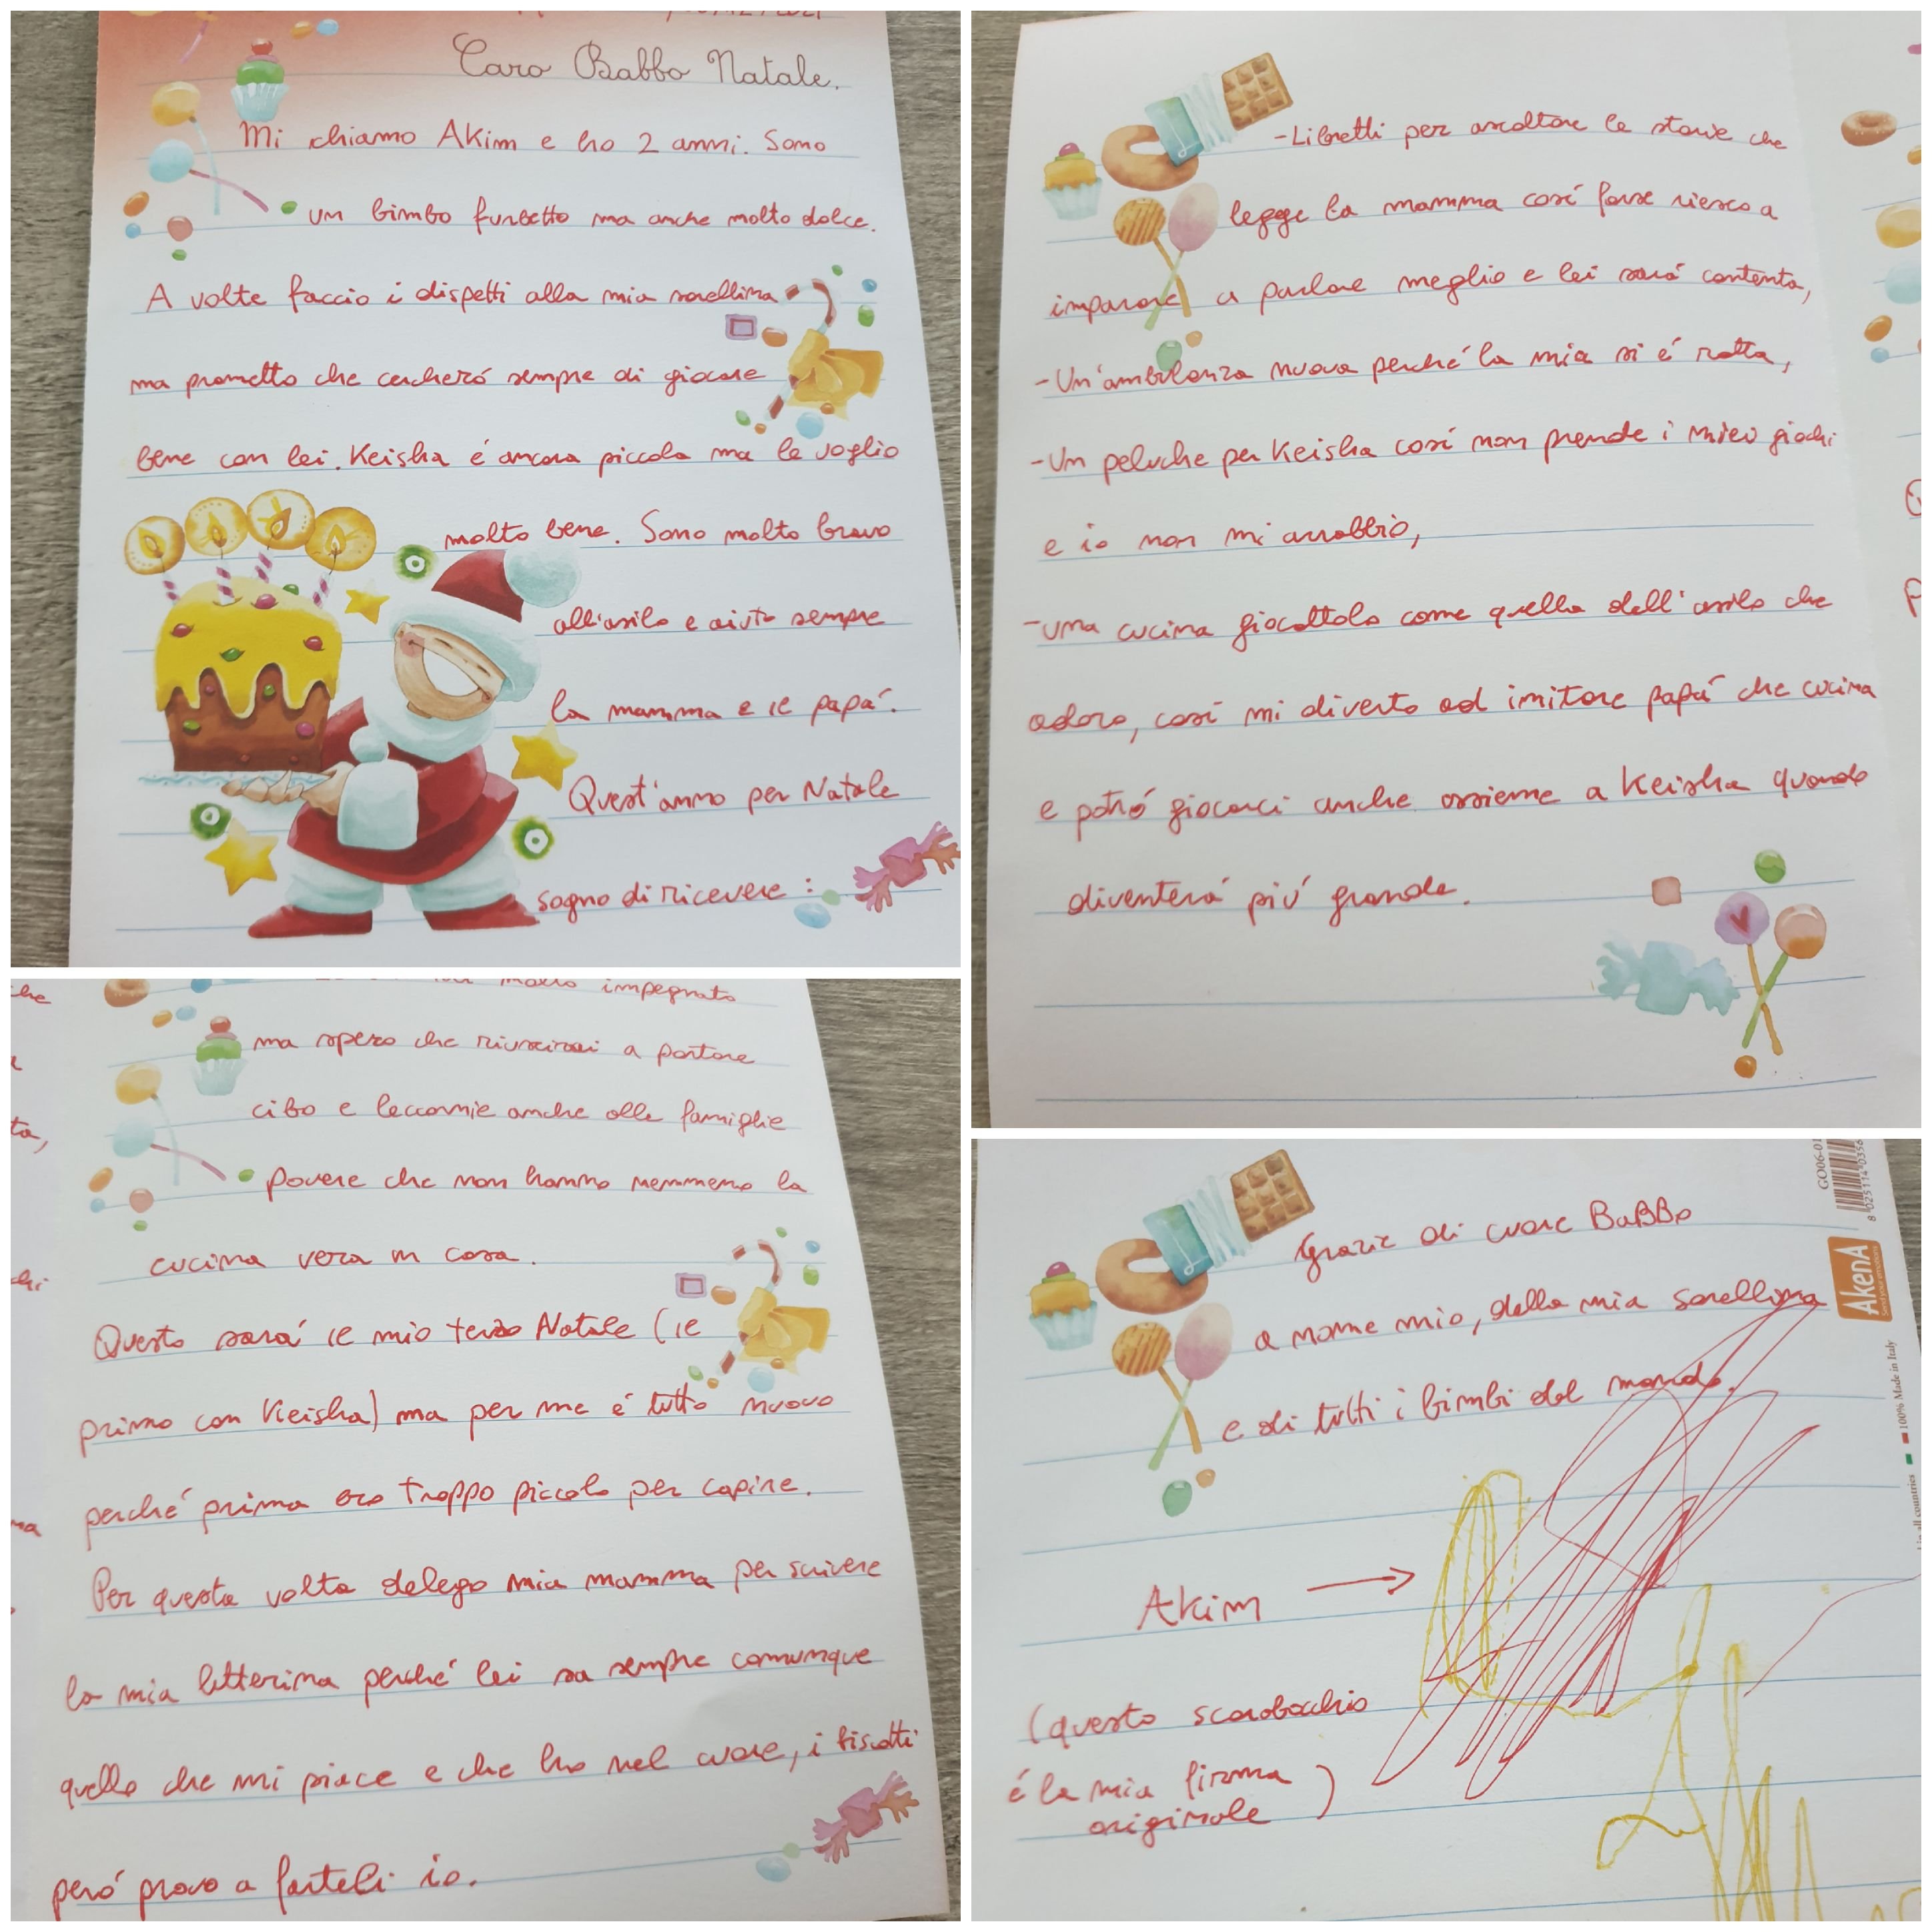 Caro Babbo Natale.
Mi chiamo Akim e ho 2 anni. Sono
un bimbo furbetto ma anche molto dolce.
A volte faccio i dispetti alla mia sorellina
ma prometto che cercheró sempre di giocare
bene con lei. Keisha é ancora piccola ma le voglio
molto bene. Sono molto bravo
all'asilo e aiuto sempre
la mamma e il papá.
Quest'anno per Natale
sogno di ricevere :
-Libretti per ascoltare le storie che
legge la mamma cosí forse riesco a
imparare a parlare meglio e lei sará contenta,
-Un'ambulanza nuova perché la mia si é rotta,
-Un peluche per Keisha cosí non prende i miei giochi
e io non mi arrabbio,
-una cucina giocattolo come quella dell'asilo che
adoro, cosí mi diverto ad imitare papá che cucina
e potró giocarci anche assieme a Keisha quando
diventerá piú grande.
molto impegnato
ma spero che riuscirai a portare
cibo e leccornie anche alle famiglie
povere che non hanno nemmeno la
cucina vera in casa.
Questo sará il mio terzo Natale (il
primo con Keisha) ma per me é tutto nuovo
perché prima ero troppo piccolo per capire.
Per questa volta delego mia mamma per scrivere
la mia letterina perché lei sa sempre comunque
quello che mi piace e che ho nel cuore, i biscotti
peró provo a farteli io.
Grazie di cuore BaBBo
a nome mio, della mia sorellina
e di tutti i bimbi del mondo.
Akim →
(questo scarabocchio
é la mia firma
originale )
GO06-01
AkenA
100% Made in Italy
all countries